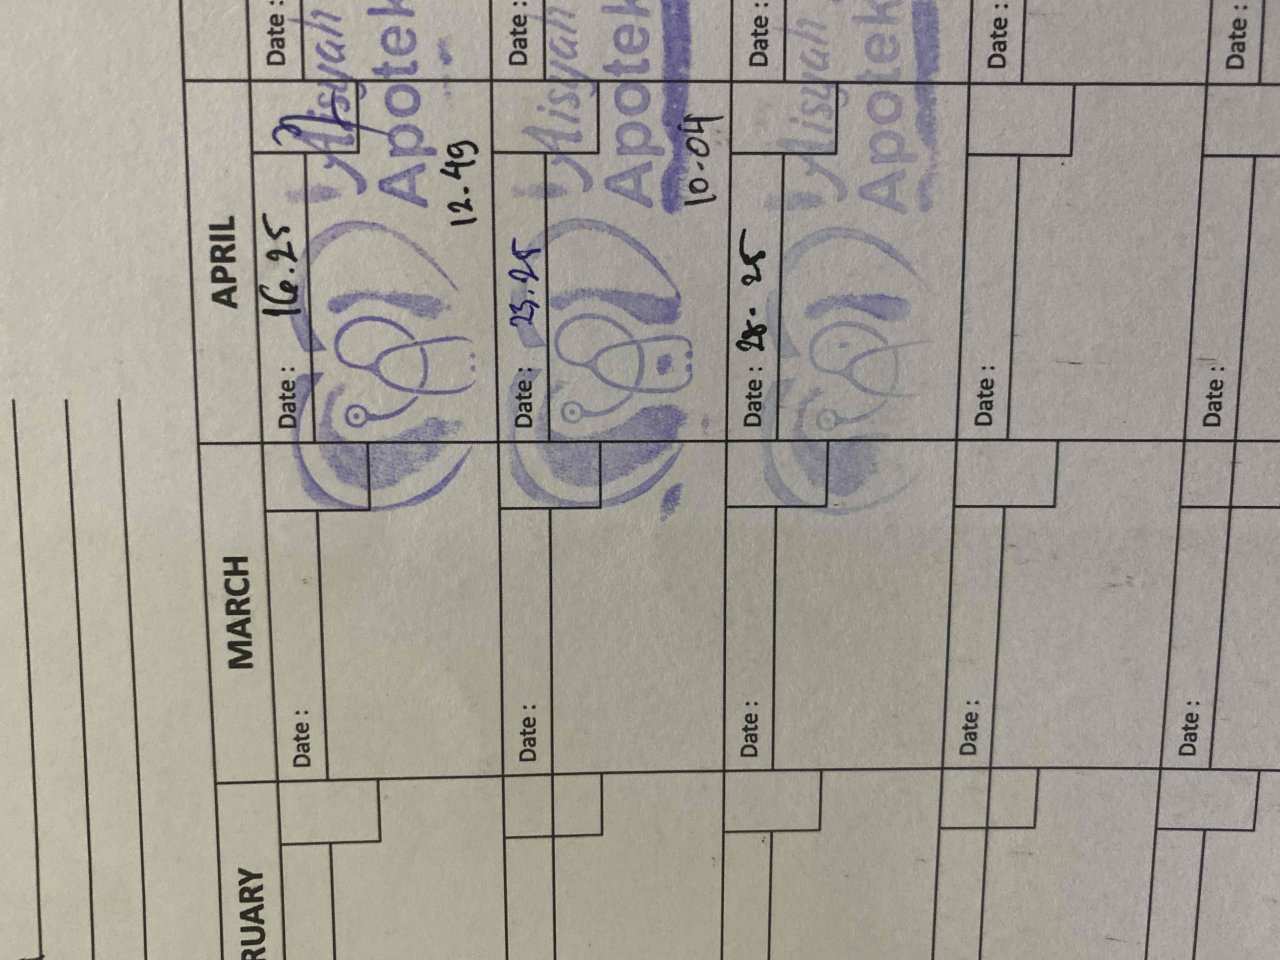 RUARY MARCH APRIL
Date : Date : 16.25 Date :
Aisyah
Apotek
12.49
Date : Date : 23.25 Date :
Aisyah
Apotek
10.04
Date : Date : 28. 25 Date :
Aisyah
Apotek
Date : Date : Date :
Date : Date : Date :